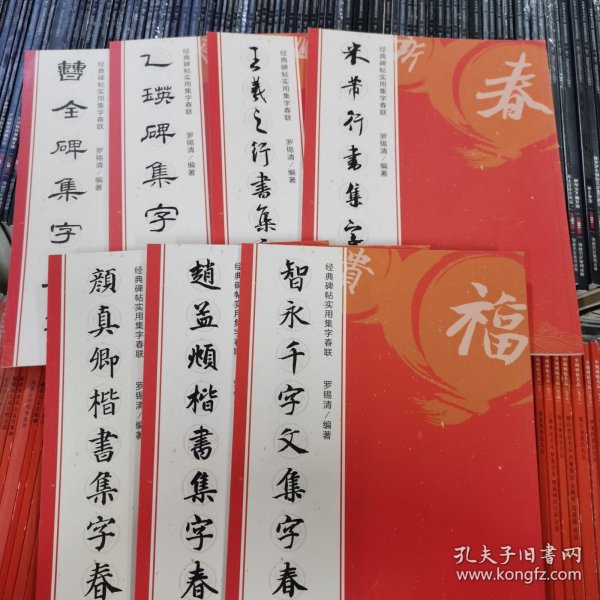 曹全碑集字
经典碑帖实用集字春联
罗锡清/编著
乙瑛碑集字
经典碑帖实用集字春联
罗锡清/编著
王羲之行书集
经典碑帖实用集字春联
罗锡清/编著
米芾行書集字
经典碑帖实用集字春联
罗锡清/编著
春
顏真卿楷書集字春
经典碑帖实用集字春联
罗锡清/编著
趙孟頫楷書集字春
经典碑帖实用集字春联
智永千字文集字春
经典碑帖实用集字春联
罗锡清/编著
福
孔夫子旧书网
www.kongfz.com